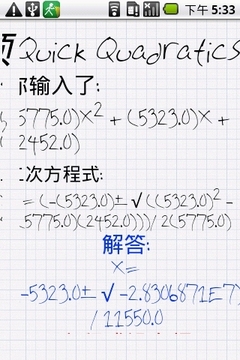 下午 5:33
Quick Quadratics
输入了:
5775.0)x² + (5323.0)x +
2452.0)
二次方程式:
= (-(5323.0)± √((5323.0)² -
5775.0)(2452.0)))/ 2(5775.0)
解答:
x=
-5323.0± √ -2.8306871E7)
/ 11550.0